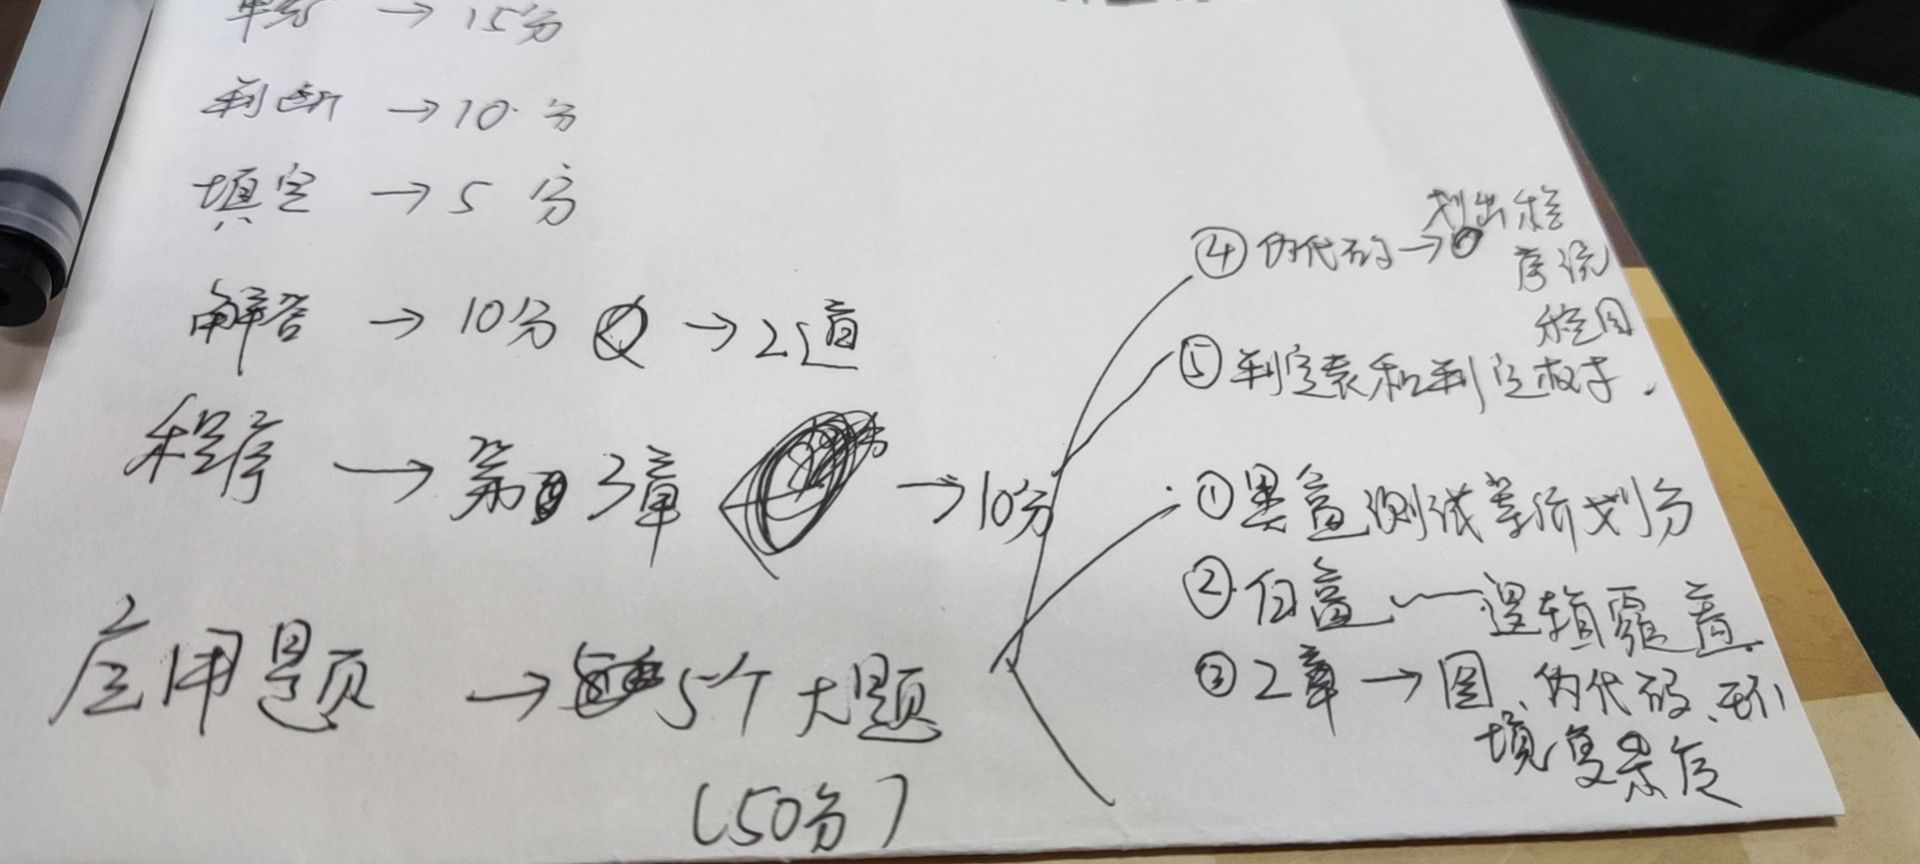 → 15分
判断 → 10分
填空 → 5分
解答 → 10分 → 2道
程序 → 第3章 → 10分
应用题 → 5个大题
(50分)
④伪代码 → 划出程
序流
程图
⑤判定表和判定树.
①黑盒测试等价划分
②白盒 — 逻辑覆盖
③2章 → 图、伪代码、
填复杂度